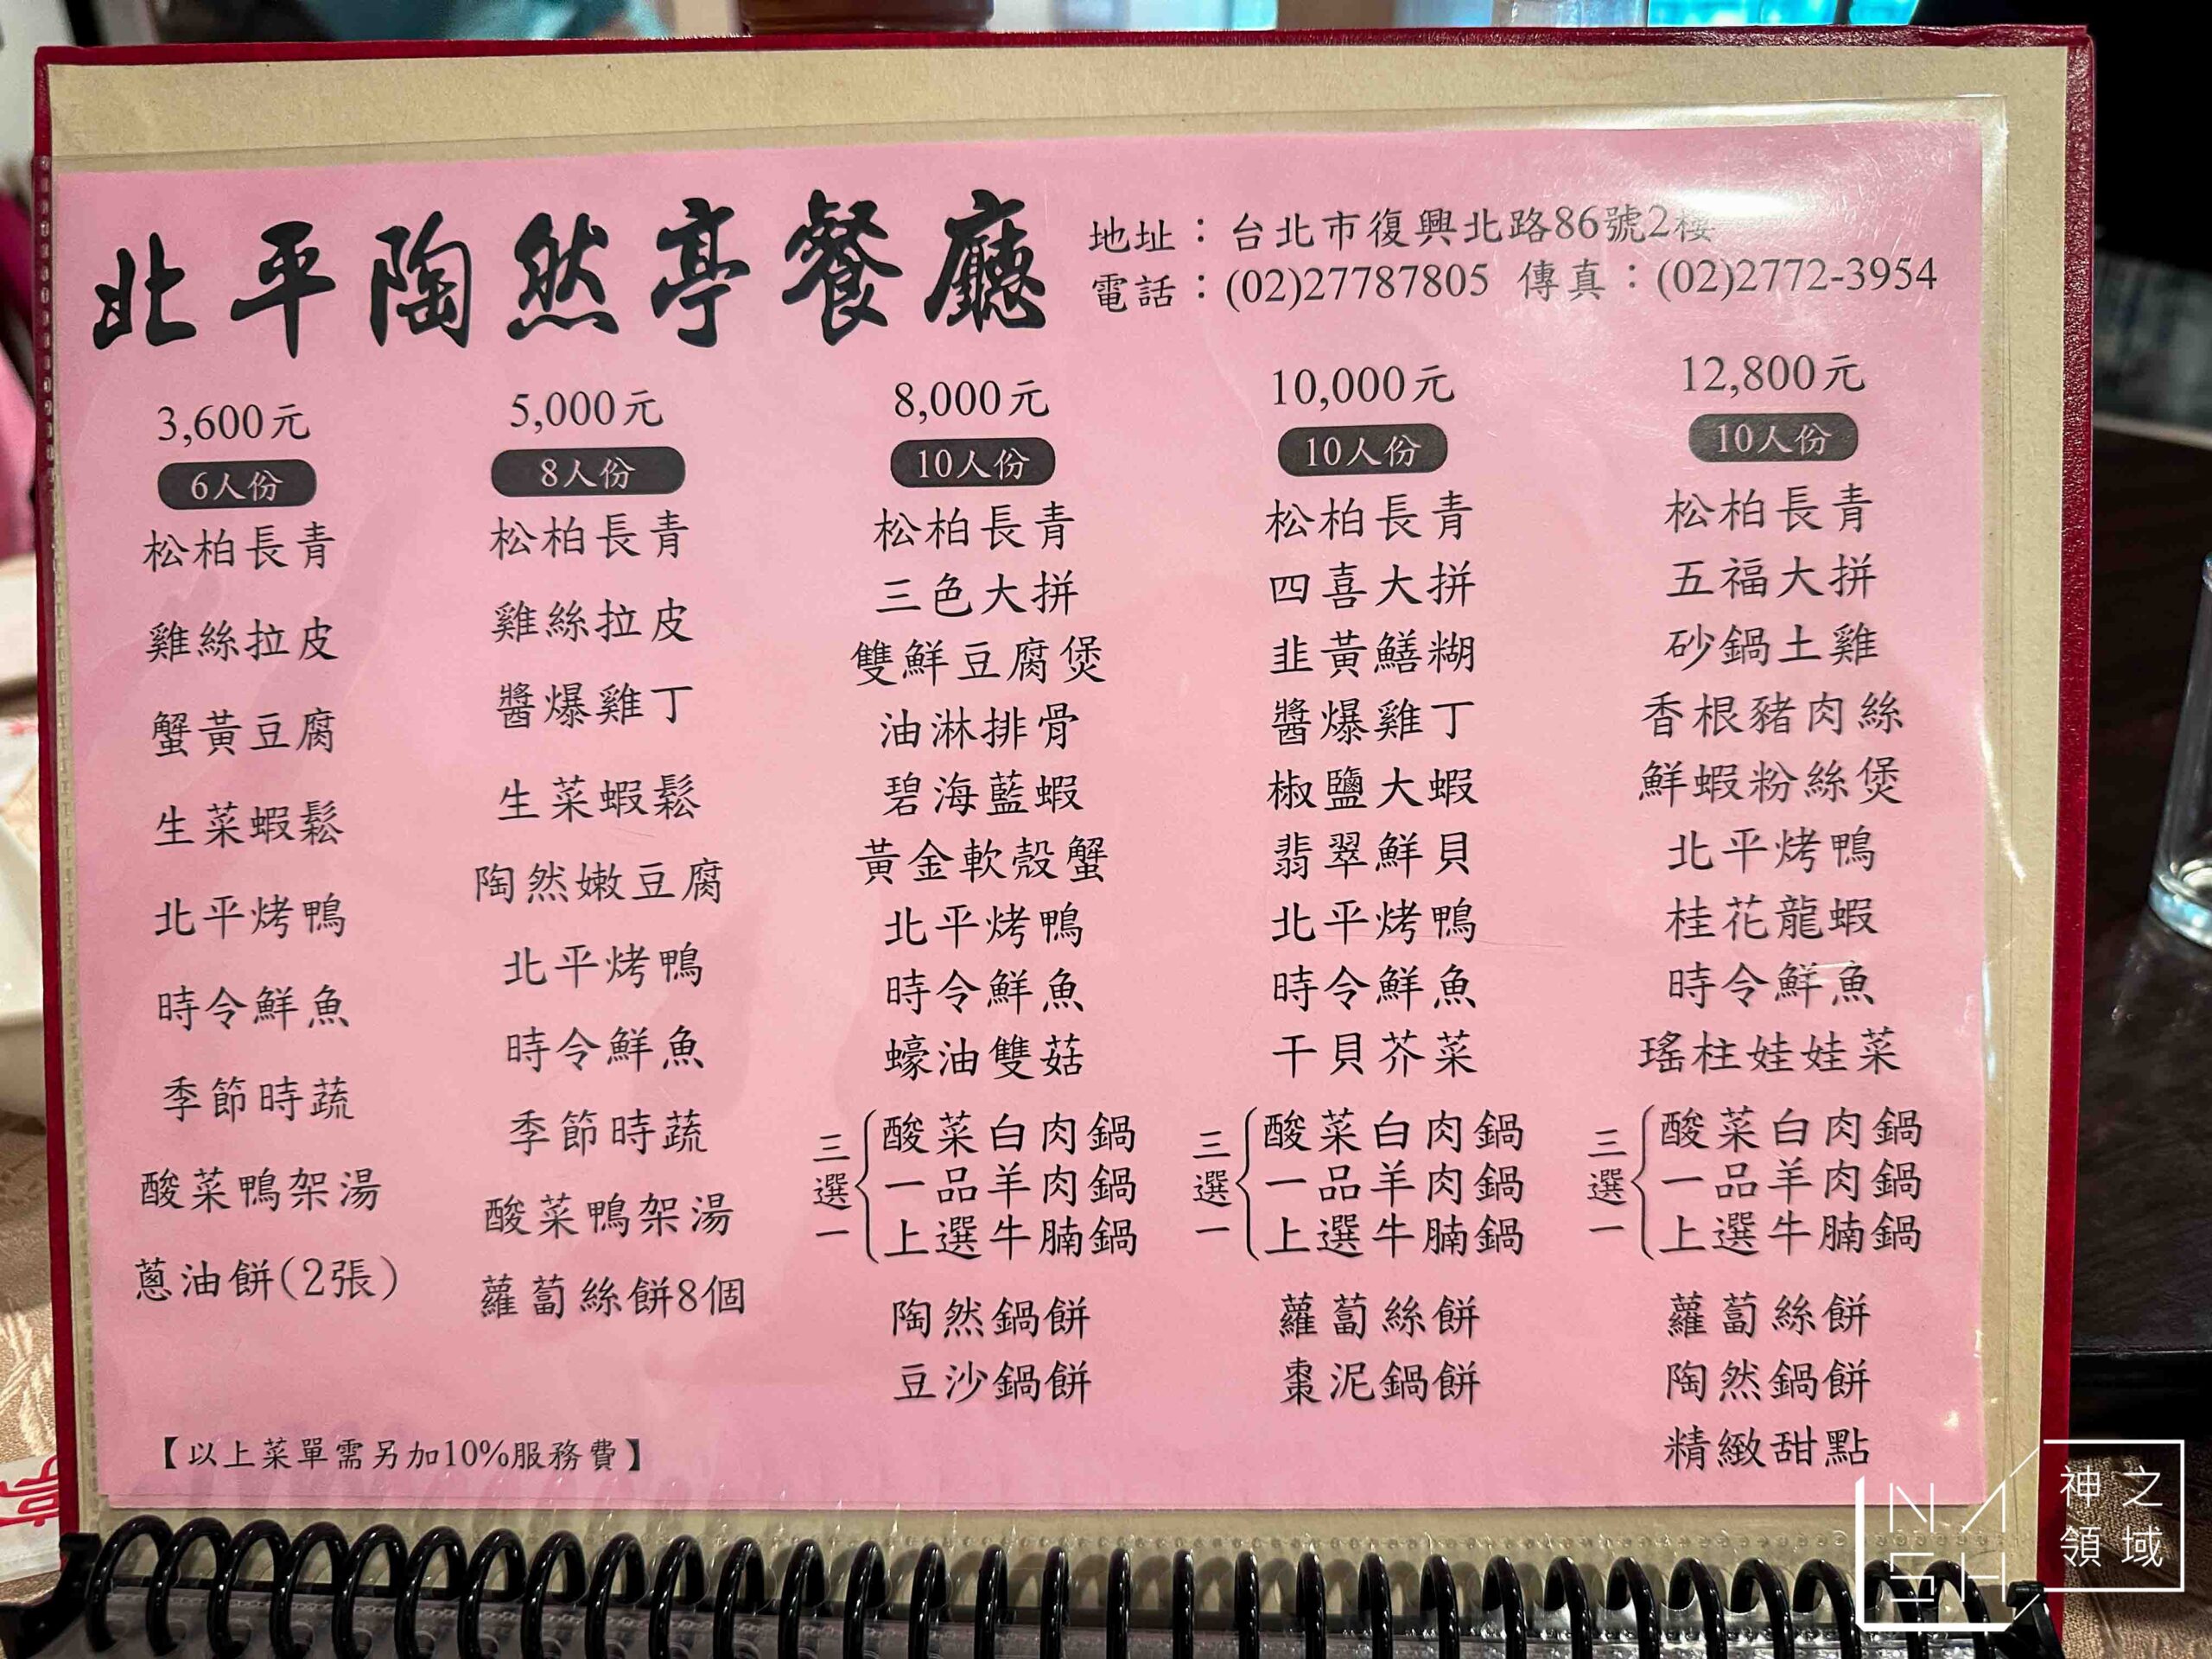 北平陶然亭餐廳
地址：台北市復興北路86號2樓
電話：(02)27787805 傳真：(02)2772-3954
3,600元
6人份
松柏長青
雞絲拉皮
蟹黃豆腐
生菜蝦鬆
北平烤鴨
時令鮮魚
季節時蔬
酸菜鴨架湯
蔥油餅(2張)
5,000元
8人份
松柏長青
雞絲拉皮
醬爆雞丁
生菜蝦鬆
陶然嫩豆腐
北平烤鴨
時令鮮魚
季節時蔬
酸菜鴨架湯
蘿蔔絲餅8個
8,000元
10人份
松柏長青
三色大拼
雙鮮豆腐煲
油淋排骨
碧海藍蝦
黃金軟殼蟹
北平烤鴨
時令鮮魚
蠔油雙菇
三選一
酸菜白肉鍋
一品羊肉鍋
上選牛腩鍋
陶然鍋餅
豆沙鍋餅
10,000元
10人份
松柏長青
四喜大拼
韭黃鱔糊
醬爆雞丁
椒鹽大蝦
翡翠鮮貝
北平烤鴨
時令鮮魚
干貝芥菜
三選一
酸菜白肉鍋
一品羊肉鍋
上選牛腩鍋
蘿蔔絲餅
棗泥鍋餅
12,800元
10人份
松柏長青
五福大拼
砂鍋土雞
香根豬肉絲
鮮蝦粉絲煲
北平烤鴨
桂花龍蝦
時令鮮魚
瑤柱娃娃菜
三選一
酸菜白肉鍋
一品羊肉鍋
上選牛腩鍋
蘿蔔絲餅
陶然鍋餅
精緻甜點
【以上菜單需另加10%服務費】
NASH
神之領域